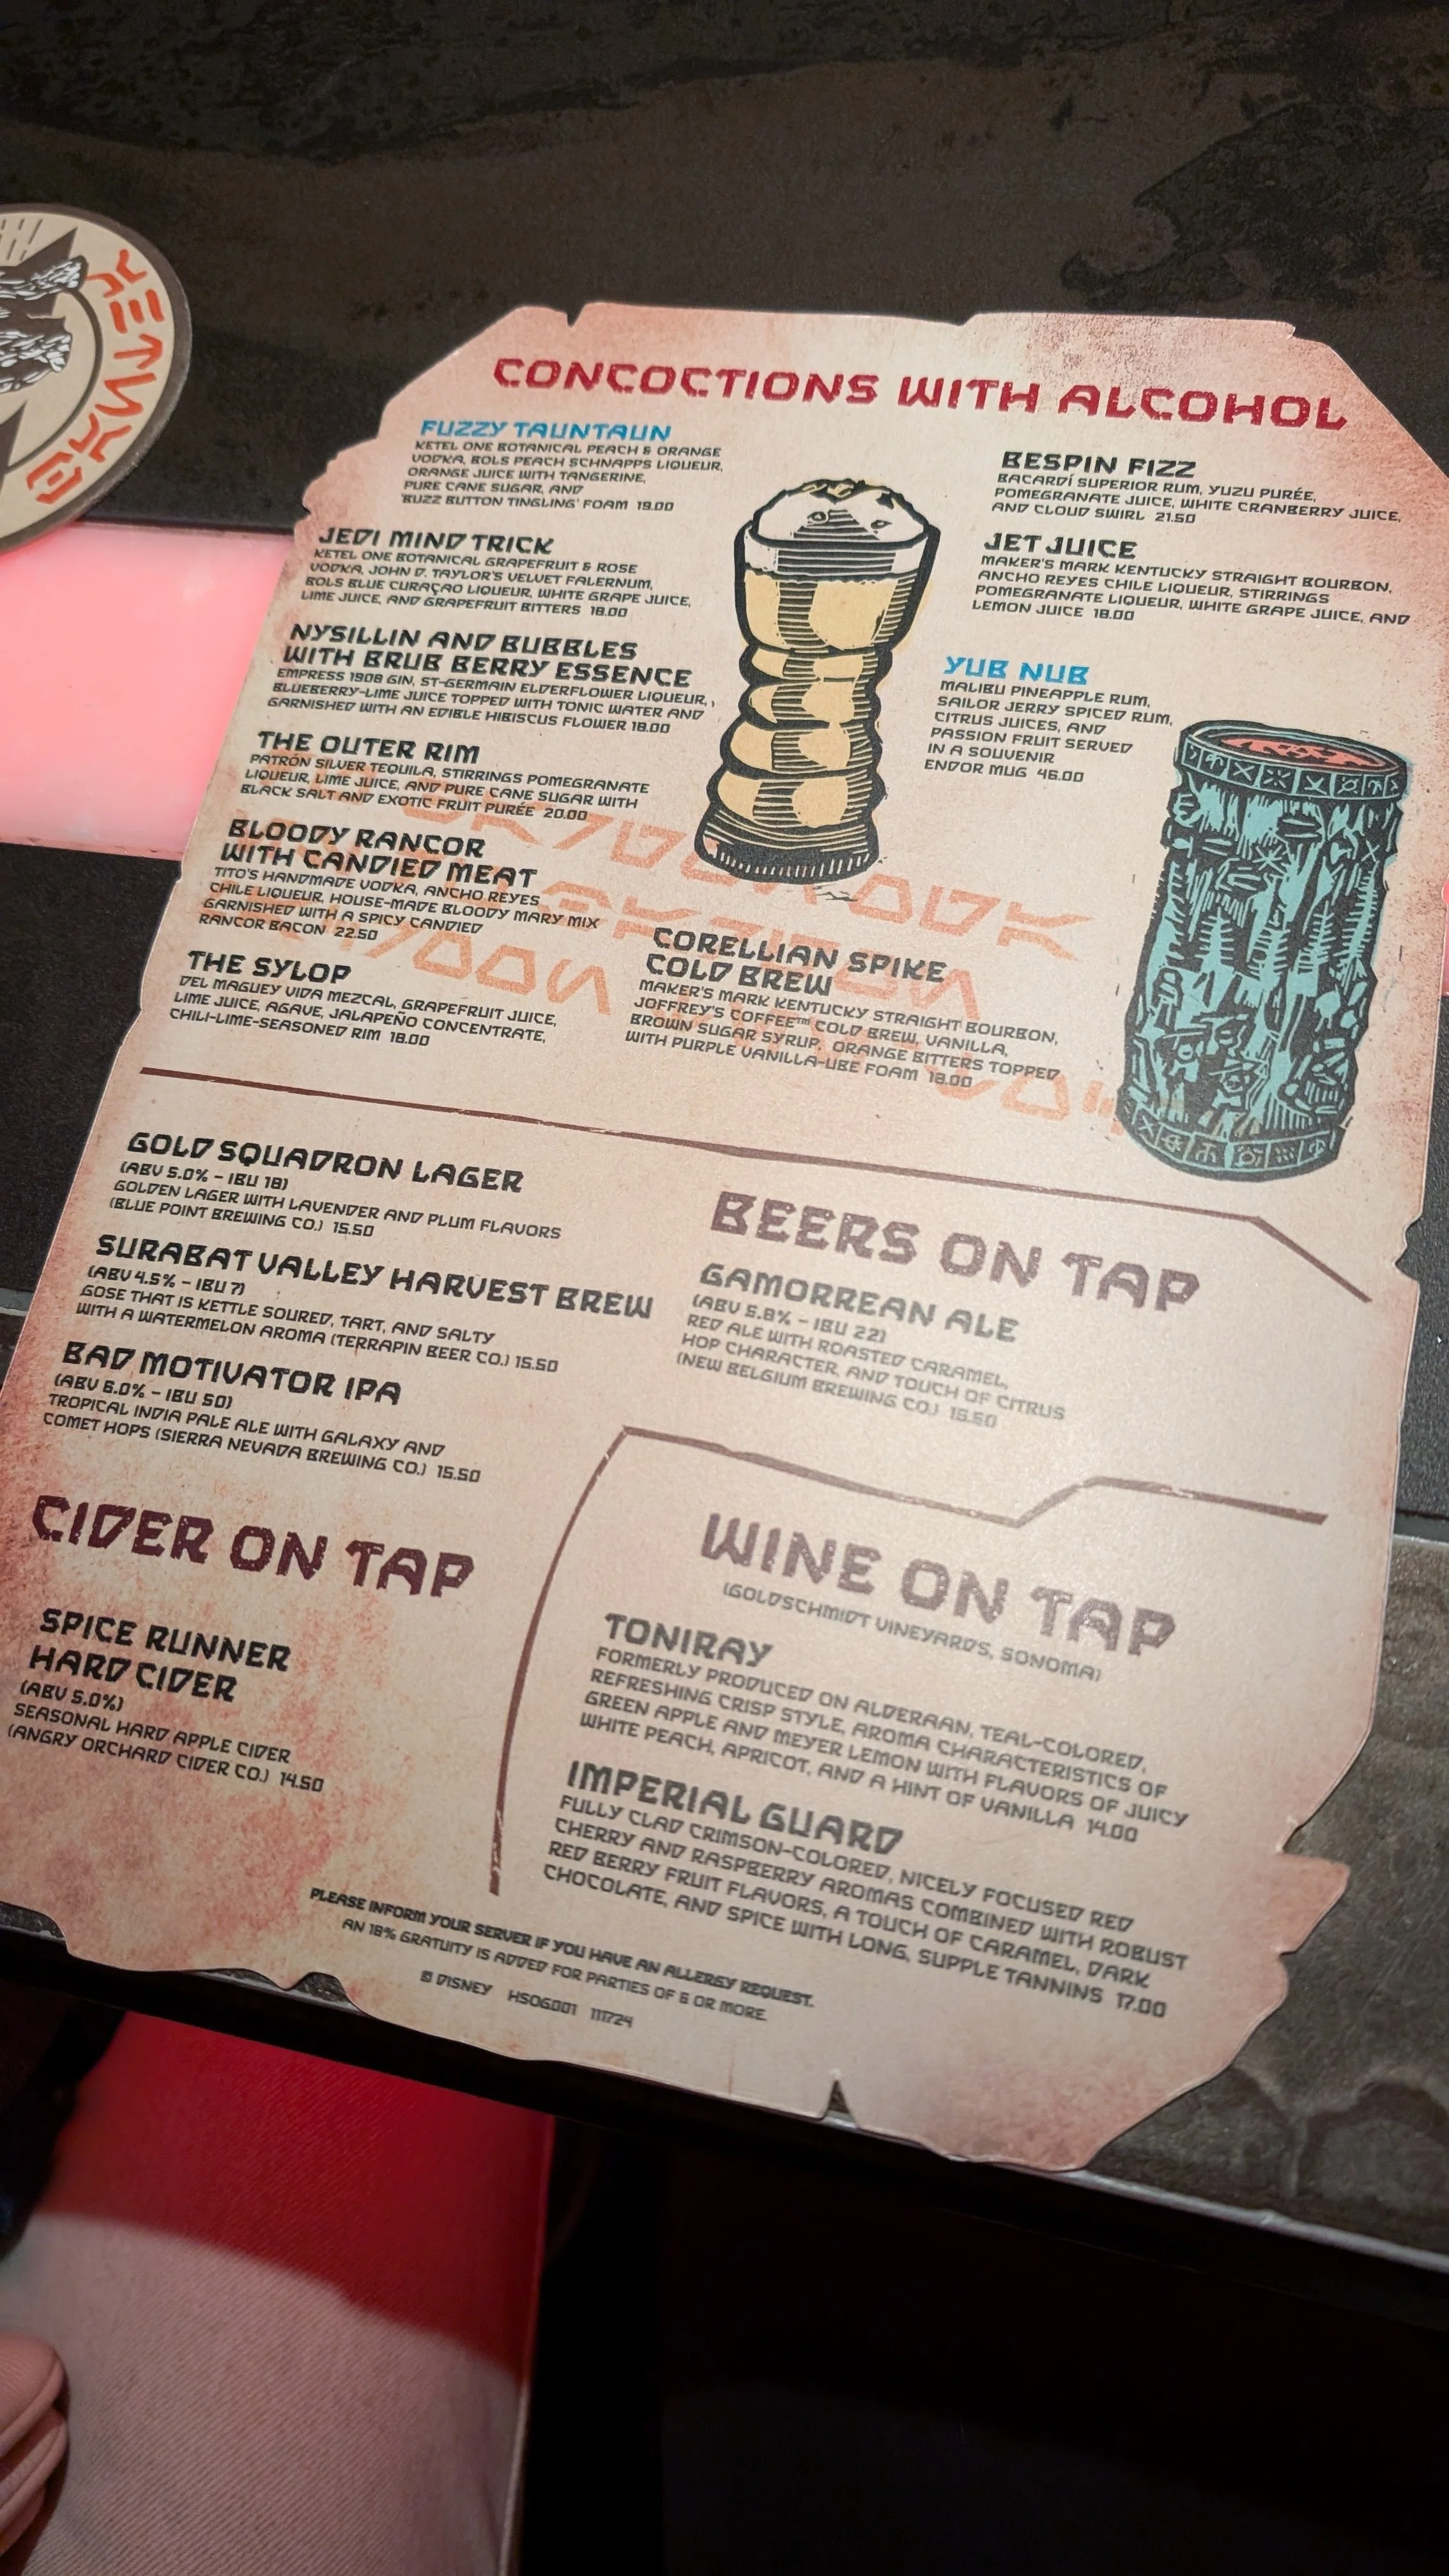 CONCOCTIONS WITH ALCOHOL
FUZZY TAUNTAUN
KETEL ONE BOTANICAL PEACH & ORANGE
VODKA, BOLS PEACH SCHNAPPS LIQUEUR,
ORANGE JUICE WITH TANGERINE,
PURE CANE SUGAR, AND
'BUZZ BUTTON TINGLING' FOAM 19.00
JEDI MIND TRICK
KETEL ONE BOTANICAL GRAPEFRUIT & ROSE
VODKA, JOHN D. TAYLOR'S VELVET FALERNUM,
BOLS BLUE CURAÇAO LIQUEUR, WHITE GRAPE JUICE,
LIME JUICE, AND GRAPEFRUIT BITTERS 18.00
NYSILLIN AND BUBBLES
WITH BRUB BERRY ESSENCE
EMPRESS 1908 GIN, ST-GERMAIN ELDERFLOWER LIQUEUR,
BLUEBERRY-LIME JUICE TOPPED WITH TONIC WATER AND
GARNISHED WITH AN EDIBLE HIBISCUS FLOWER 18.00
THE OUTER RIM
PATRÓN SILVER TEQUILA, STIRRINGS POMEGRANATE
LIQUEUR, LIME JUICE, AND PURE CANE SUGAR WITH
BLACK SALT AND EXOTIC FRUIT PURÉE 20.00
BLOODY RANCOR
WITH CANDIED MEAT
TITO'S HANDMADE VODKA, ANCHO REYES
CHILE LIQUEUR, HOUSE-MADE BLOODY MARY MIX
GARNISHED WITH A SPICY CANDIED
RANCOR BACON 22.50
THE SYLOP
DEL MAGUEY VIDA MEZCAL, GRAPEFRUIT JUICE,
LIME JUICE, AGAVE, JALAPEÑO CONCENTRATE,
CHILI-LIME-SEASONED RIM 18.00
BESPIN FIZZ
BACARDÍ SUPERIOR RUM, YUZU PURÉE,
POMEGRANATE JUICE, WHITE CRANBERRY JUICE,
AND CLOUD SWIRL 21.50
JET JUICE
MAKER'S MARK KENTUCKY STRAIGHT BOURBON,
ANCHO REYES CHILE LIQUEUR, STIRRINGS
POMEGRANATE LIQUEUR, WHITE GRAPE JUICE, AND
LEMON JUICE 18.00
YUB NUB
MALIBU PINEAPPLE RUM,
SAILOR JERRY SPICED RUM,
CITRUS JUICES, AND
PASSION FRUIT SERVED
IN A SOUVENIR
ENDOR MUG 46.00
CORELLIAN SPIKE
COLD BREW
MAKER'S MARK KENTUCKY STRAIGHT BOURBON,
JOFFREY'S COFFEE™ COLD BREW, VANILLA,
BROWN SUGAR SYRUP, ORANGE BITTERS TOPPED
WITH PURPLE VANILLA-UBE FOAM 18.00
GOLD SQUADRON LAGER
(ABV 5.0% – IBU 18)
GOLDEN LAGER WITH LAVENDER AND PLUM FLAVORS
(BLUE POINT BREWING CO.) 15.50
SURABAT VALLEY HARVEST BREW
(ABV 4.5% – IBU 7)
GOSE THAT IS KETTLE SOURED, TART, AND SALTY
WITH A WATERMELON AROMA (TERRAPIN BEER CO.) 15.50
BAD MOTIVATOR IPA
(ABV 6.0% – IBU 50)
TROPICAL INDIA PALE ALE WITH GALAXY AND
COMET HOPS (SIERRA NEVADA BREWING CO.) 15.50
BEERS ON TAP
GAMORREAN ALE
(ABV 5.8% – IBU 22)
RED ALE WITH ROASTED CARAMEL,
HOP CHARACTER, AND TOUCH OF CITRUS
(NEW BELGIUM BREWING CO.) 15.50
CIDER ON TAP
SPICE RUNNER
HARD CIDER
(ABV 5.0%)
SEASONAL HARD APPLE CIDER
(ANGRY ORCHARD CIDER CO.) 14.50
WINE ON TAP
(GOLDSCHMIDT VINEYARDS, SONOMA)
TONIRAY
FORMERLY PRODUCED ON ALDERAAN, TEAL-COLORED,
REFRESHING CRISP STYLE, AROMA CHARACTERISTICS OF
GREEN APPLE AND MEYER LEMON WITH FLAVORS OF JUICY
WHITE PEACH, APRICOT, AND A HINT OF VANILLA 14.00
IMPERIAL GUARD
FULLY CLAD CRIMSON-COLORED, NICELY FOCUSED RED
CHERRY AND RASPBERRY AROMAS COMBINED WITH ROBUST
RED BERRY FRUIT FLAVORS, A TOUCH OF CARAMEL, DARK
CHOCOLATE, AND SPICE WITH LONG, SUPPLE TANNINS 17.00
PLEASE INFORM YOUR SERVER IF YOU HAVE AN ALLERGY REQUEST.
AN 18% GRATUITY IS ADDED FOR PARTIES OF 6 OR MORE.
© DISNEY HSOG001 111724